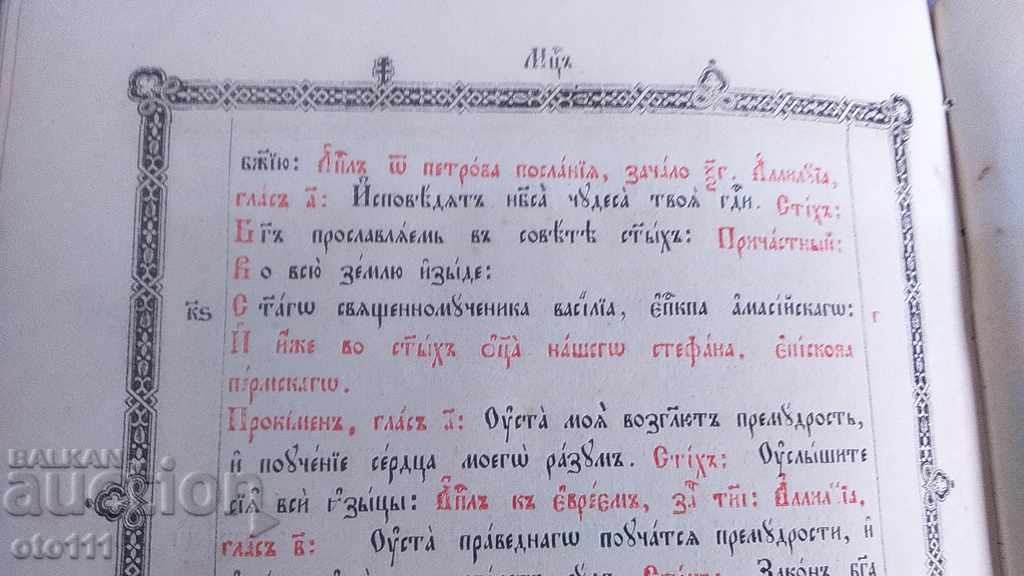 Мц҃ъ
бж҃їю: А҆пⷭ҇лъ ѿ петро́ва посла́нїѧ, зача́ло н҃г. А҆ллилꙋ́їа,
гла́съ а҃: И҆сповѣ́дѧтъ нб҃са̀ чꙋдеса̀ твоѧ̑ гдⷭ҇и. Сті́хъ:
Бг҃ъ прославлѧ́емь въ совѣ́тѣ ст҃ы́хъ: Прича́стный:
Во всю̀ зе́млю и҆зы́де:
к҃ѕ Ст҃а́гѡ свѧщенномꙋ́ченика васі́лїа, є҆пⷭ҇кпа а҆масі́йскагѡ: г
И҆ и҆́же во ст҃ы́хъ ѻ҆ц҃а̀ на́шегѡ стефа́на, є҆пі́скопа
пе́рмскагѡ.
Прокі́менъ, гла́съ а҃: Оу҆ста̀ моѧ̑ возгл҃ютъ премꙋ́дрость,
и҆ поꙋче́нїе се́рдца моегѡ̀ ра́зꙋмъ. Сті́хъ: Оу҆слы́шите
сїѧ̑ всѝ ꙗ҆зы́цы: А҆пⷭ҇лъ къ є҆вре́ємъ, за҃ т҃і: А҆ллилꙋ́їа,
гла́съ в҃: Оу҆ста̀ пра́веднагѡ поꙋча́тсѧ премꙋ́дрости, и҆
Зако́нъ бг҃а
BALKAN
auction
oto111